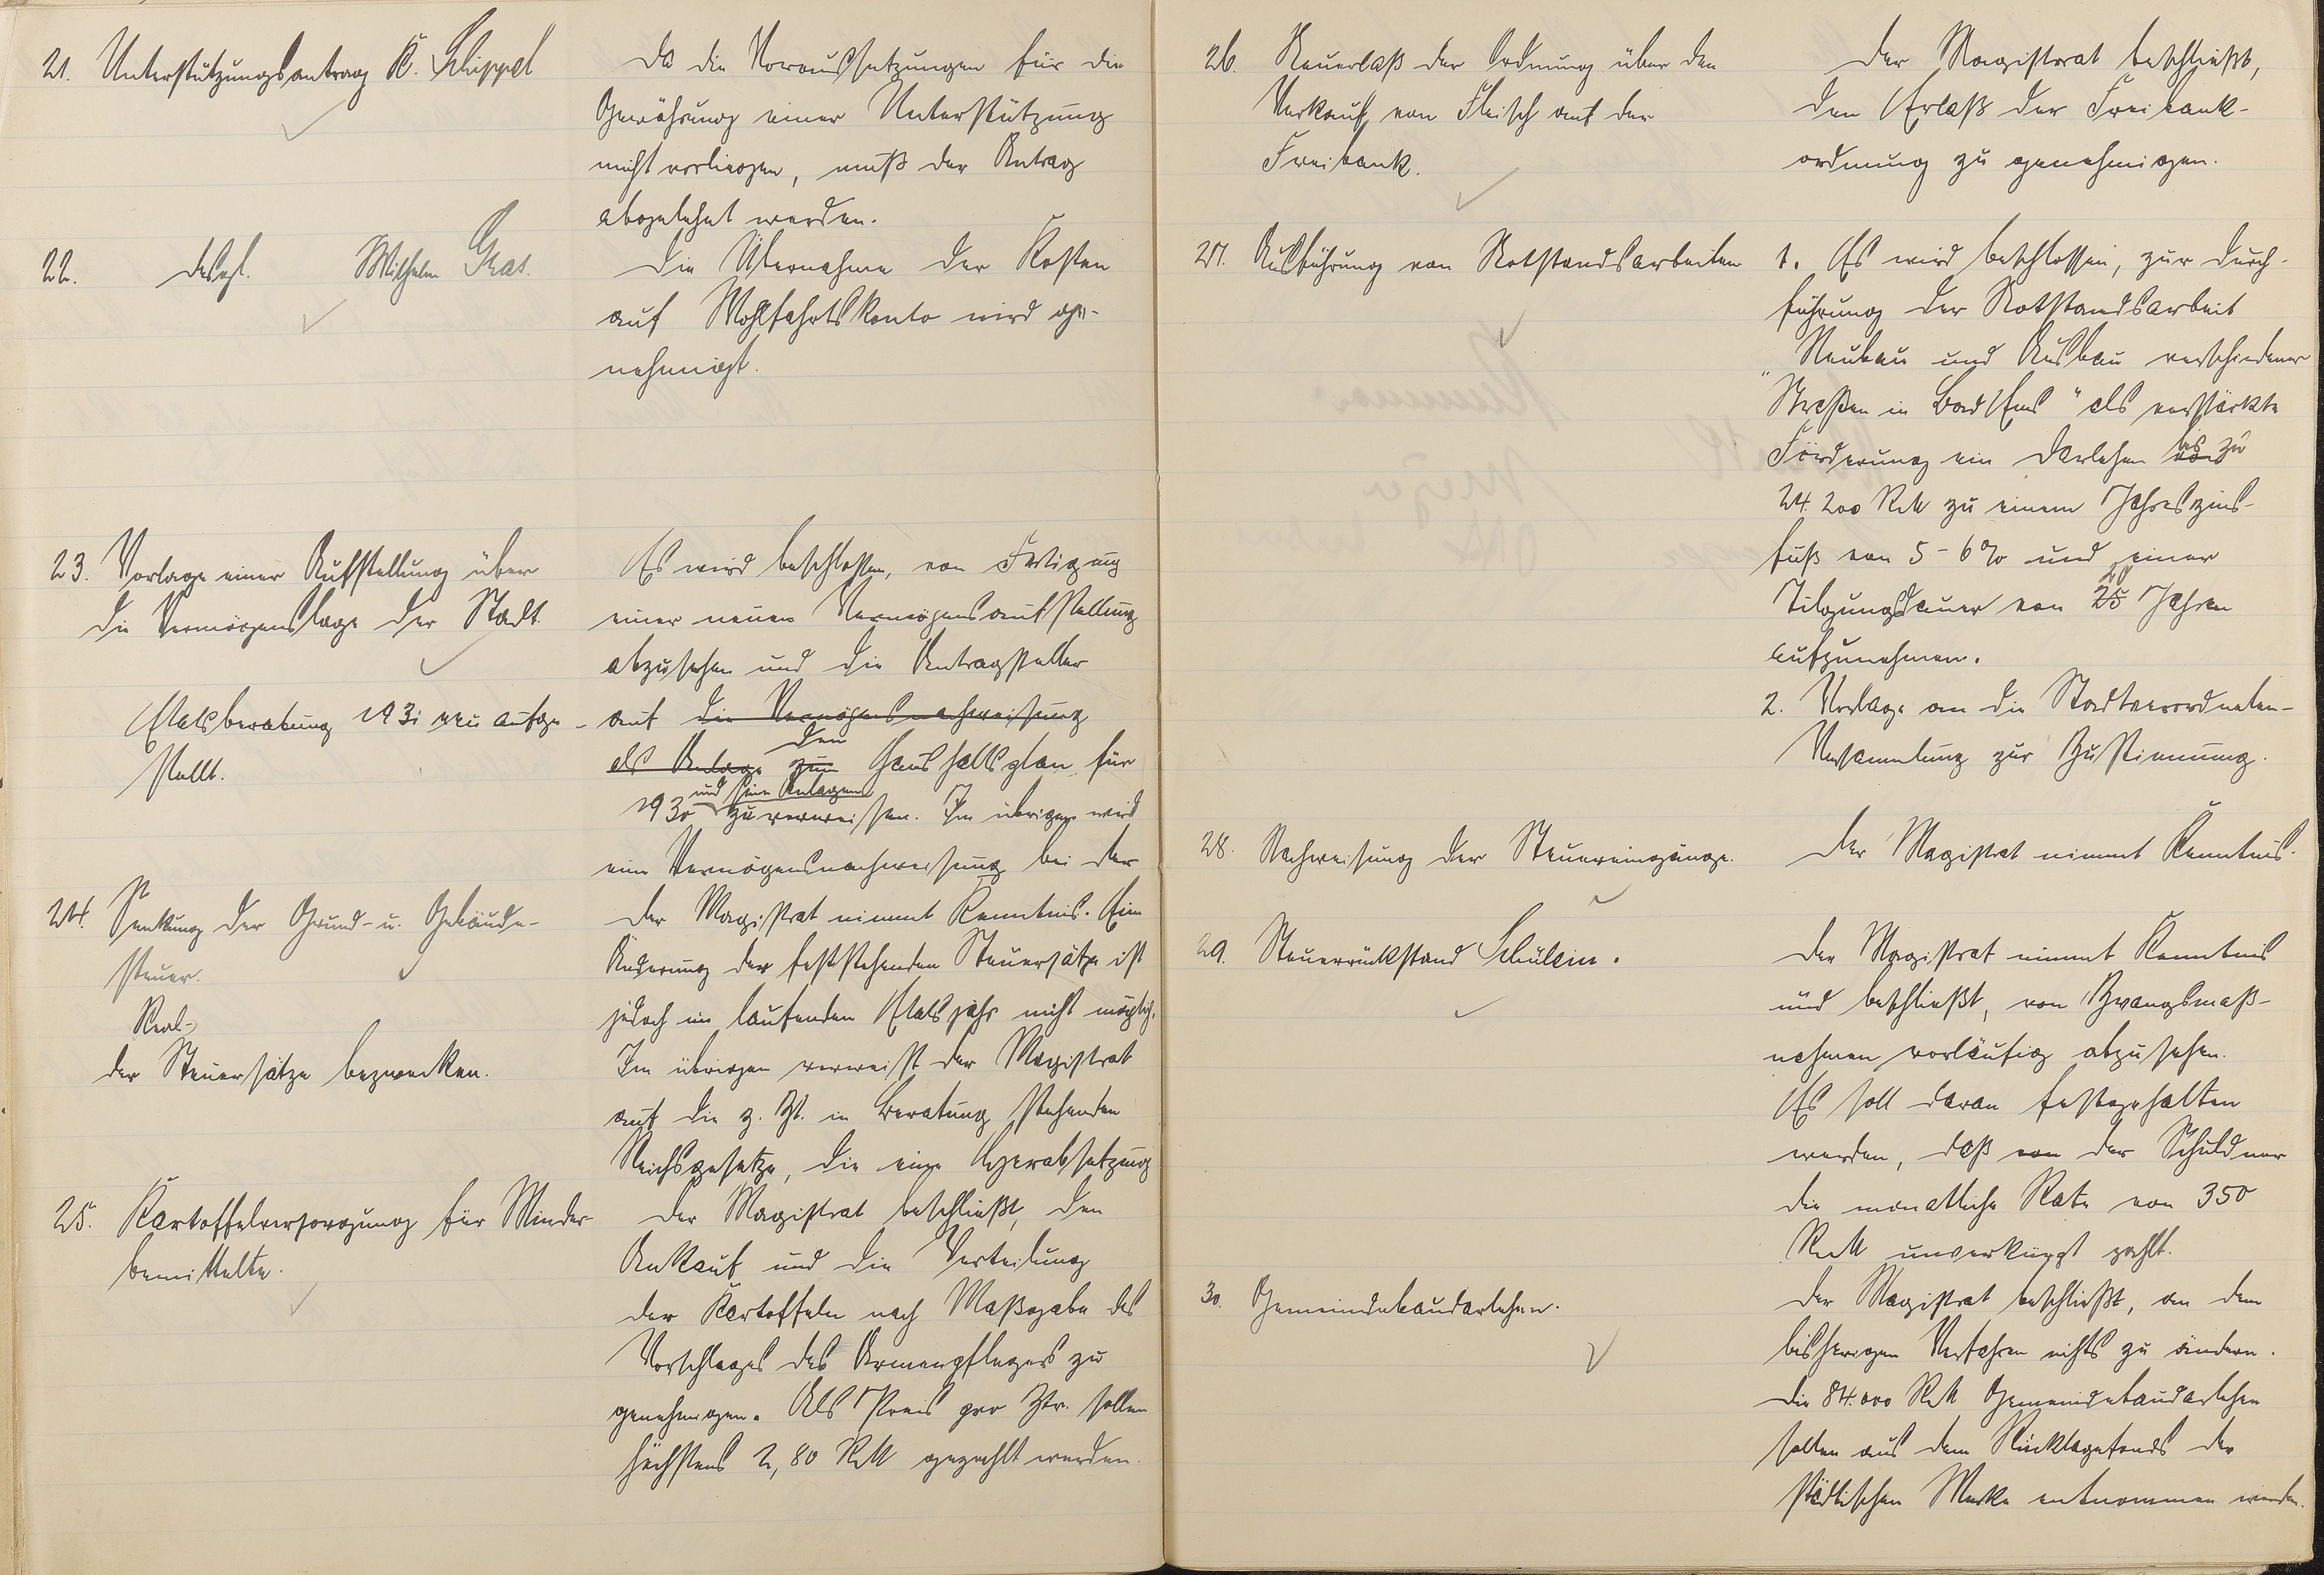 21. Unterstützungsantrag K. Schippel
Da die Voraussetzungen für die
Gewährung einer Unterstützung
nicht vorliegen, muß der Antrag
abgelehnt werden.
22. desgl. Wilhelm Gras.
Die Übernahme der Kosten
auf Wohlfahrtskonto wird ge-
nehmigt.
23. Vorlage einer Aufstellung über
die Vermögenslage der Stadt.
Es wird beschlossen, von Fertigung
einer neuen Vermögensaufstellung
abzusehen und die Antragsteller
auf die Vermögensnachweisung
als Anlage zum den Haushaltsplan für
1930 und seine Anlagen zu verweisen. Im übrigen wird
eine Vermögensnachweisung bei der
Etatsberatung 1931 neu aufge-
stellt.
24. Senkung der Grund- u. Gebäude-
steuer.
Der Magistrat nimmt Kenntnis. Eine
Änderung der feststehenden Steuersätze ist
jedoch im laufenden Etatsjahr nicht möglich.
Im übrigen verweist der Magistrat
auf die z. Zt. in Beratung stehenden
Reichsgesetze, die eine Herabsetzung
Real-
der Steuersätze bezwecken.
25. Kartoffelversorgung für Minder-
bemittelte.
Der Magistrat beschließt, den
Ankauf und die Verteilung
der Kartoffeln nach Maßgabe des
Vorschlages des Armenpflegers zu
genehmigen. Als Preis pro Ztr. sollen
höchstens 2,80 RM gezahlt werden.
26. Neuerlaß der Ordnung über den
Verkauf von Fleisch auf der
Freibank.
Der Magistrat beschließt,
den Erlaß der Freibank-
ordnung zu genehmigen.
27. Ausführung von Notstandsarbeiten
1. Es wird beschlossen, zur Durch-
führung der Notstandsarbeit
"Neubau und Ausbau verschiedener
Straßen in Bad Ems" als verstärkte
Förderung ein Darlehen von bis zu
24.200 RM zu einem Jahreszins-
fuß von 5-6% und einer
Tilgungsdauer von 25 20 Jahren
aufzunehmen.
2. Vorlage an die Stadtverordneten-
Versammlung zur Zustimmung.
28. Nachweisung der Steuereingänge.
Der Magistrat nimmt Kenntnis.
29. Steuerrückstand Schülein.
Der Magistrat nimmt Kenntnis
und beschließt, von Zwangsmaß-
nahmen vorläufig abzusehen.
Es soll daran festgehalten
werden, daß von der Schuldner
die monatliche Rate von 350
RM unverkürzt zahlt.
30. Gemeindebaudarlehen.
Der Magistrat beschließt, an dem
bisherigen Verfahren nichts zu ändern.
Die 84.000 RM Gemeindebaudarlehen
sollen aus dem Rücklagefonds der
städtischen Werke entnommen werden.